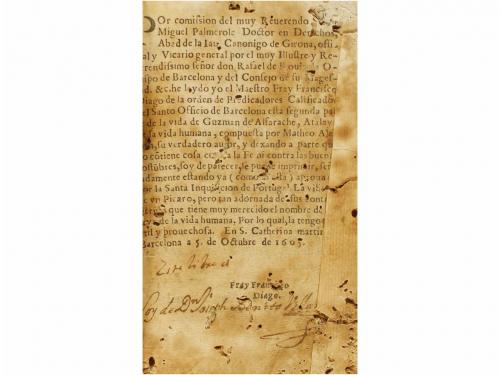 POr comission del muy Reuerendo
Miguel Palmerole Doctor en Derechos,
Abad de la Canonigo de Girona, offi
al y Vicario general por el muy Illustre y Re-
rendissimo señor don Rafael de O-
spo de Barcelona y del Consejo de su Mages-
d, &c. he leydo yo el Maestro Fray Francisco
Diago de la orden de Predicadores Calificado
el Santo Officio de Barcelona esta segunda pa
de la vida de Guzman de Alfarache, Atalay
la vida humana, compuesta por Matheo Ale
a, su verdadero autor, y dexando a parte que
o cõtiene cosa la Fe ni contra las buenas
costũbres, soy de parecer, se puede imprimir,
damente estando ya
por la Santa Inquisicion de Portugal. La vida
en Picaro, pero tan adornada de sus
que tiene muy merecido el nombre de
de la vida humana. Por lo qual, la tengo
til y prouechosa. En S. Catherina martir
Barcelona a 5. de Octubre de 1605.
Fray Francisco
Diago.
Soy de Dn Joseph